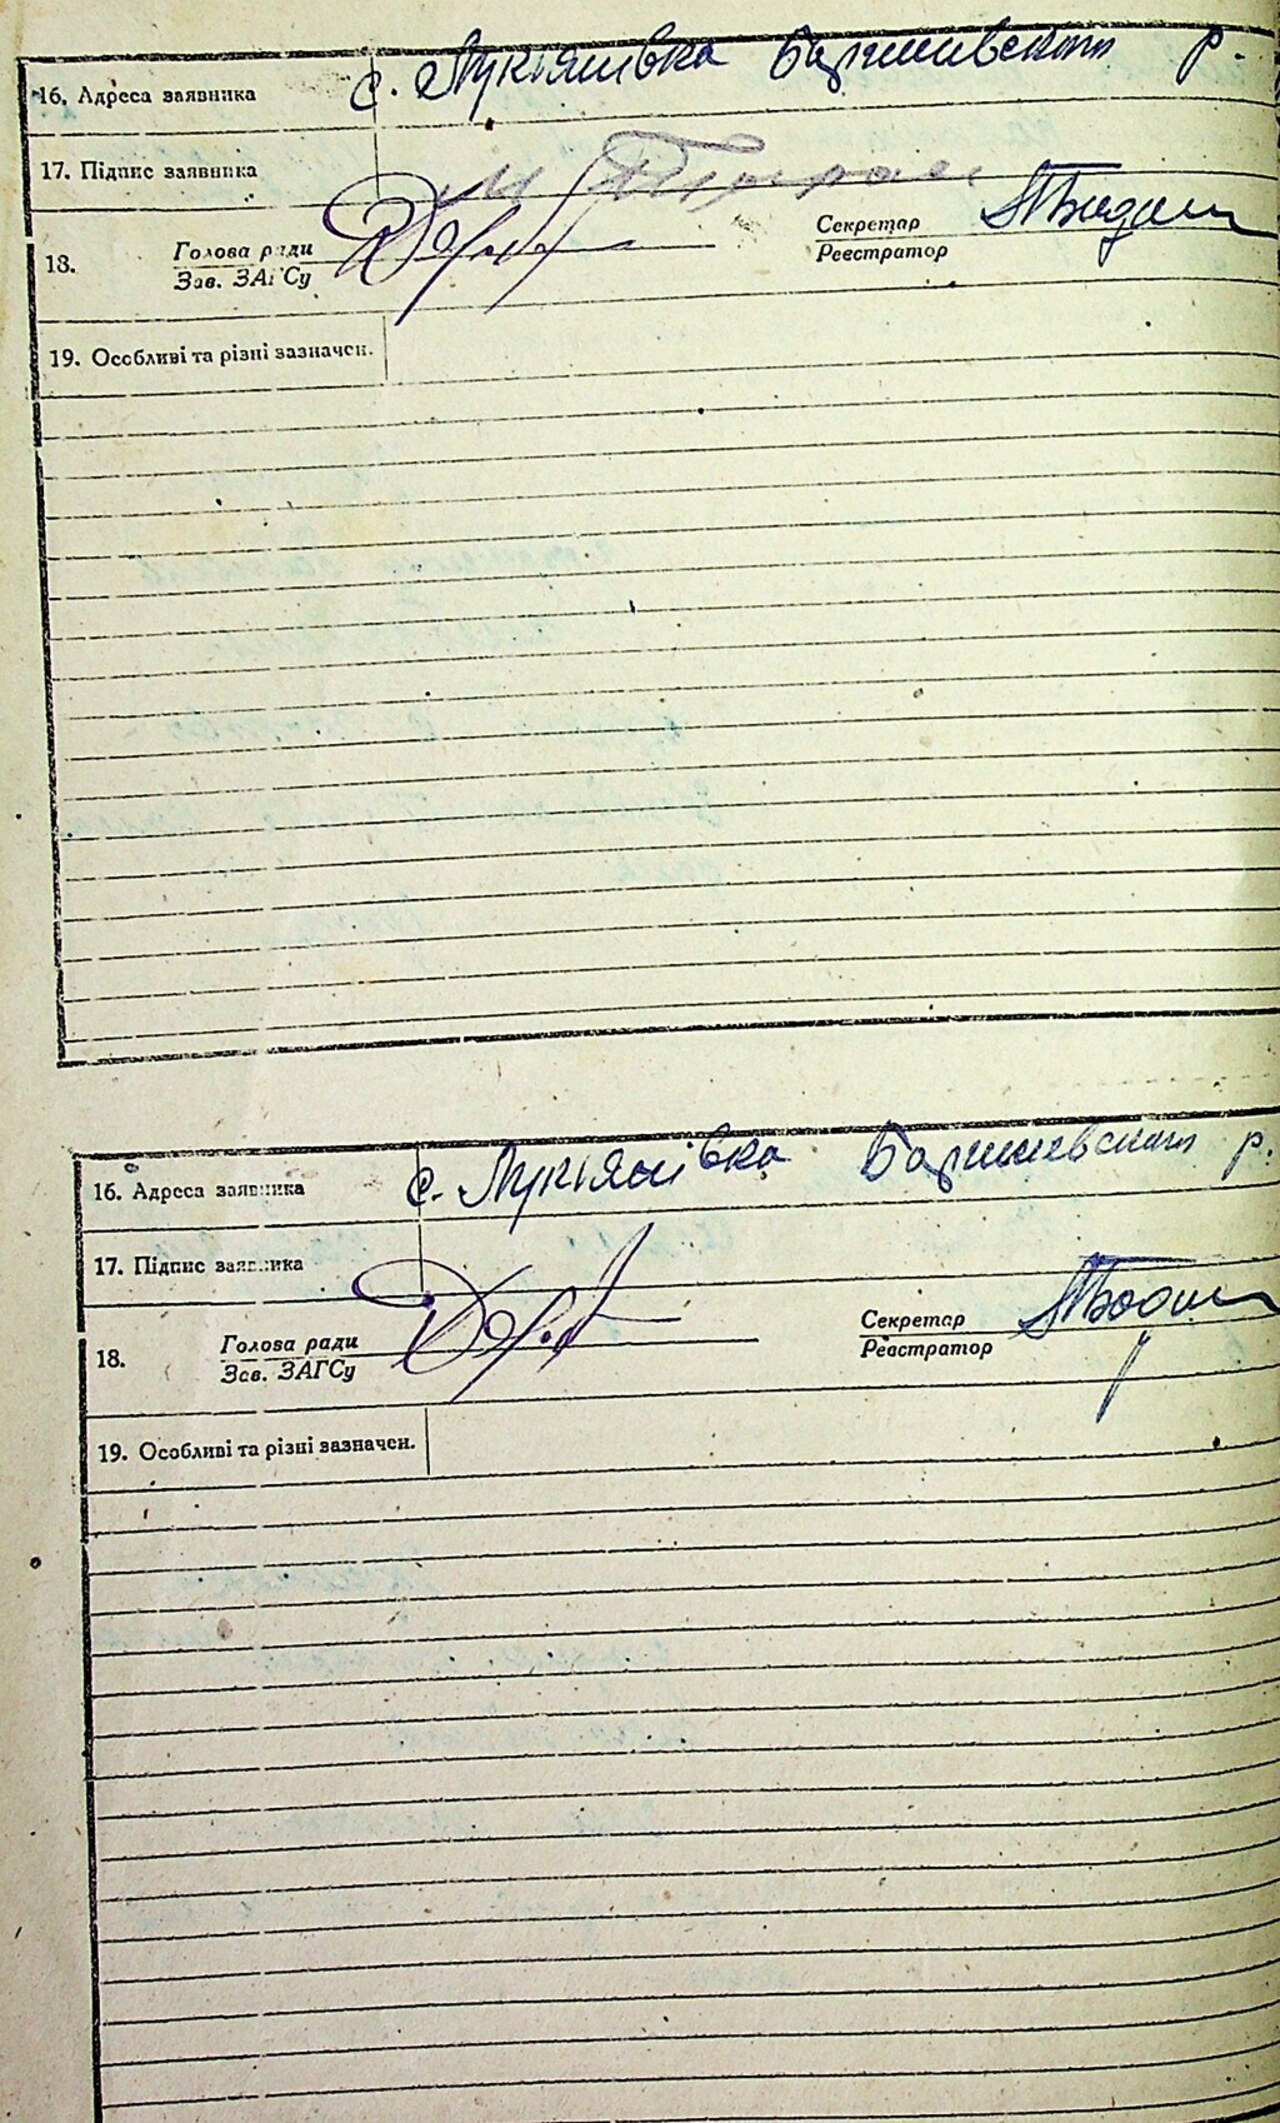 16. Адреса заявника с. Лукянівка Баришивского р.
17. Підпис заявника
18. Голова ради Секретар
Зав. ЗАГСу Реєстратор
19. Особливі та різні зазначен.
16. Адреса заявника с. Лукянівка Баришивского р.
17. Підпис заявника
18. Голова ради Секретар
Зав. ЗАГСу Реєстратор
19. Особливі та різні зазначен.